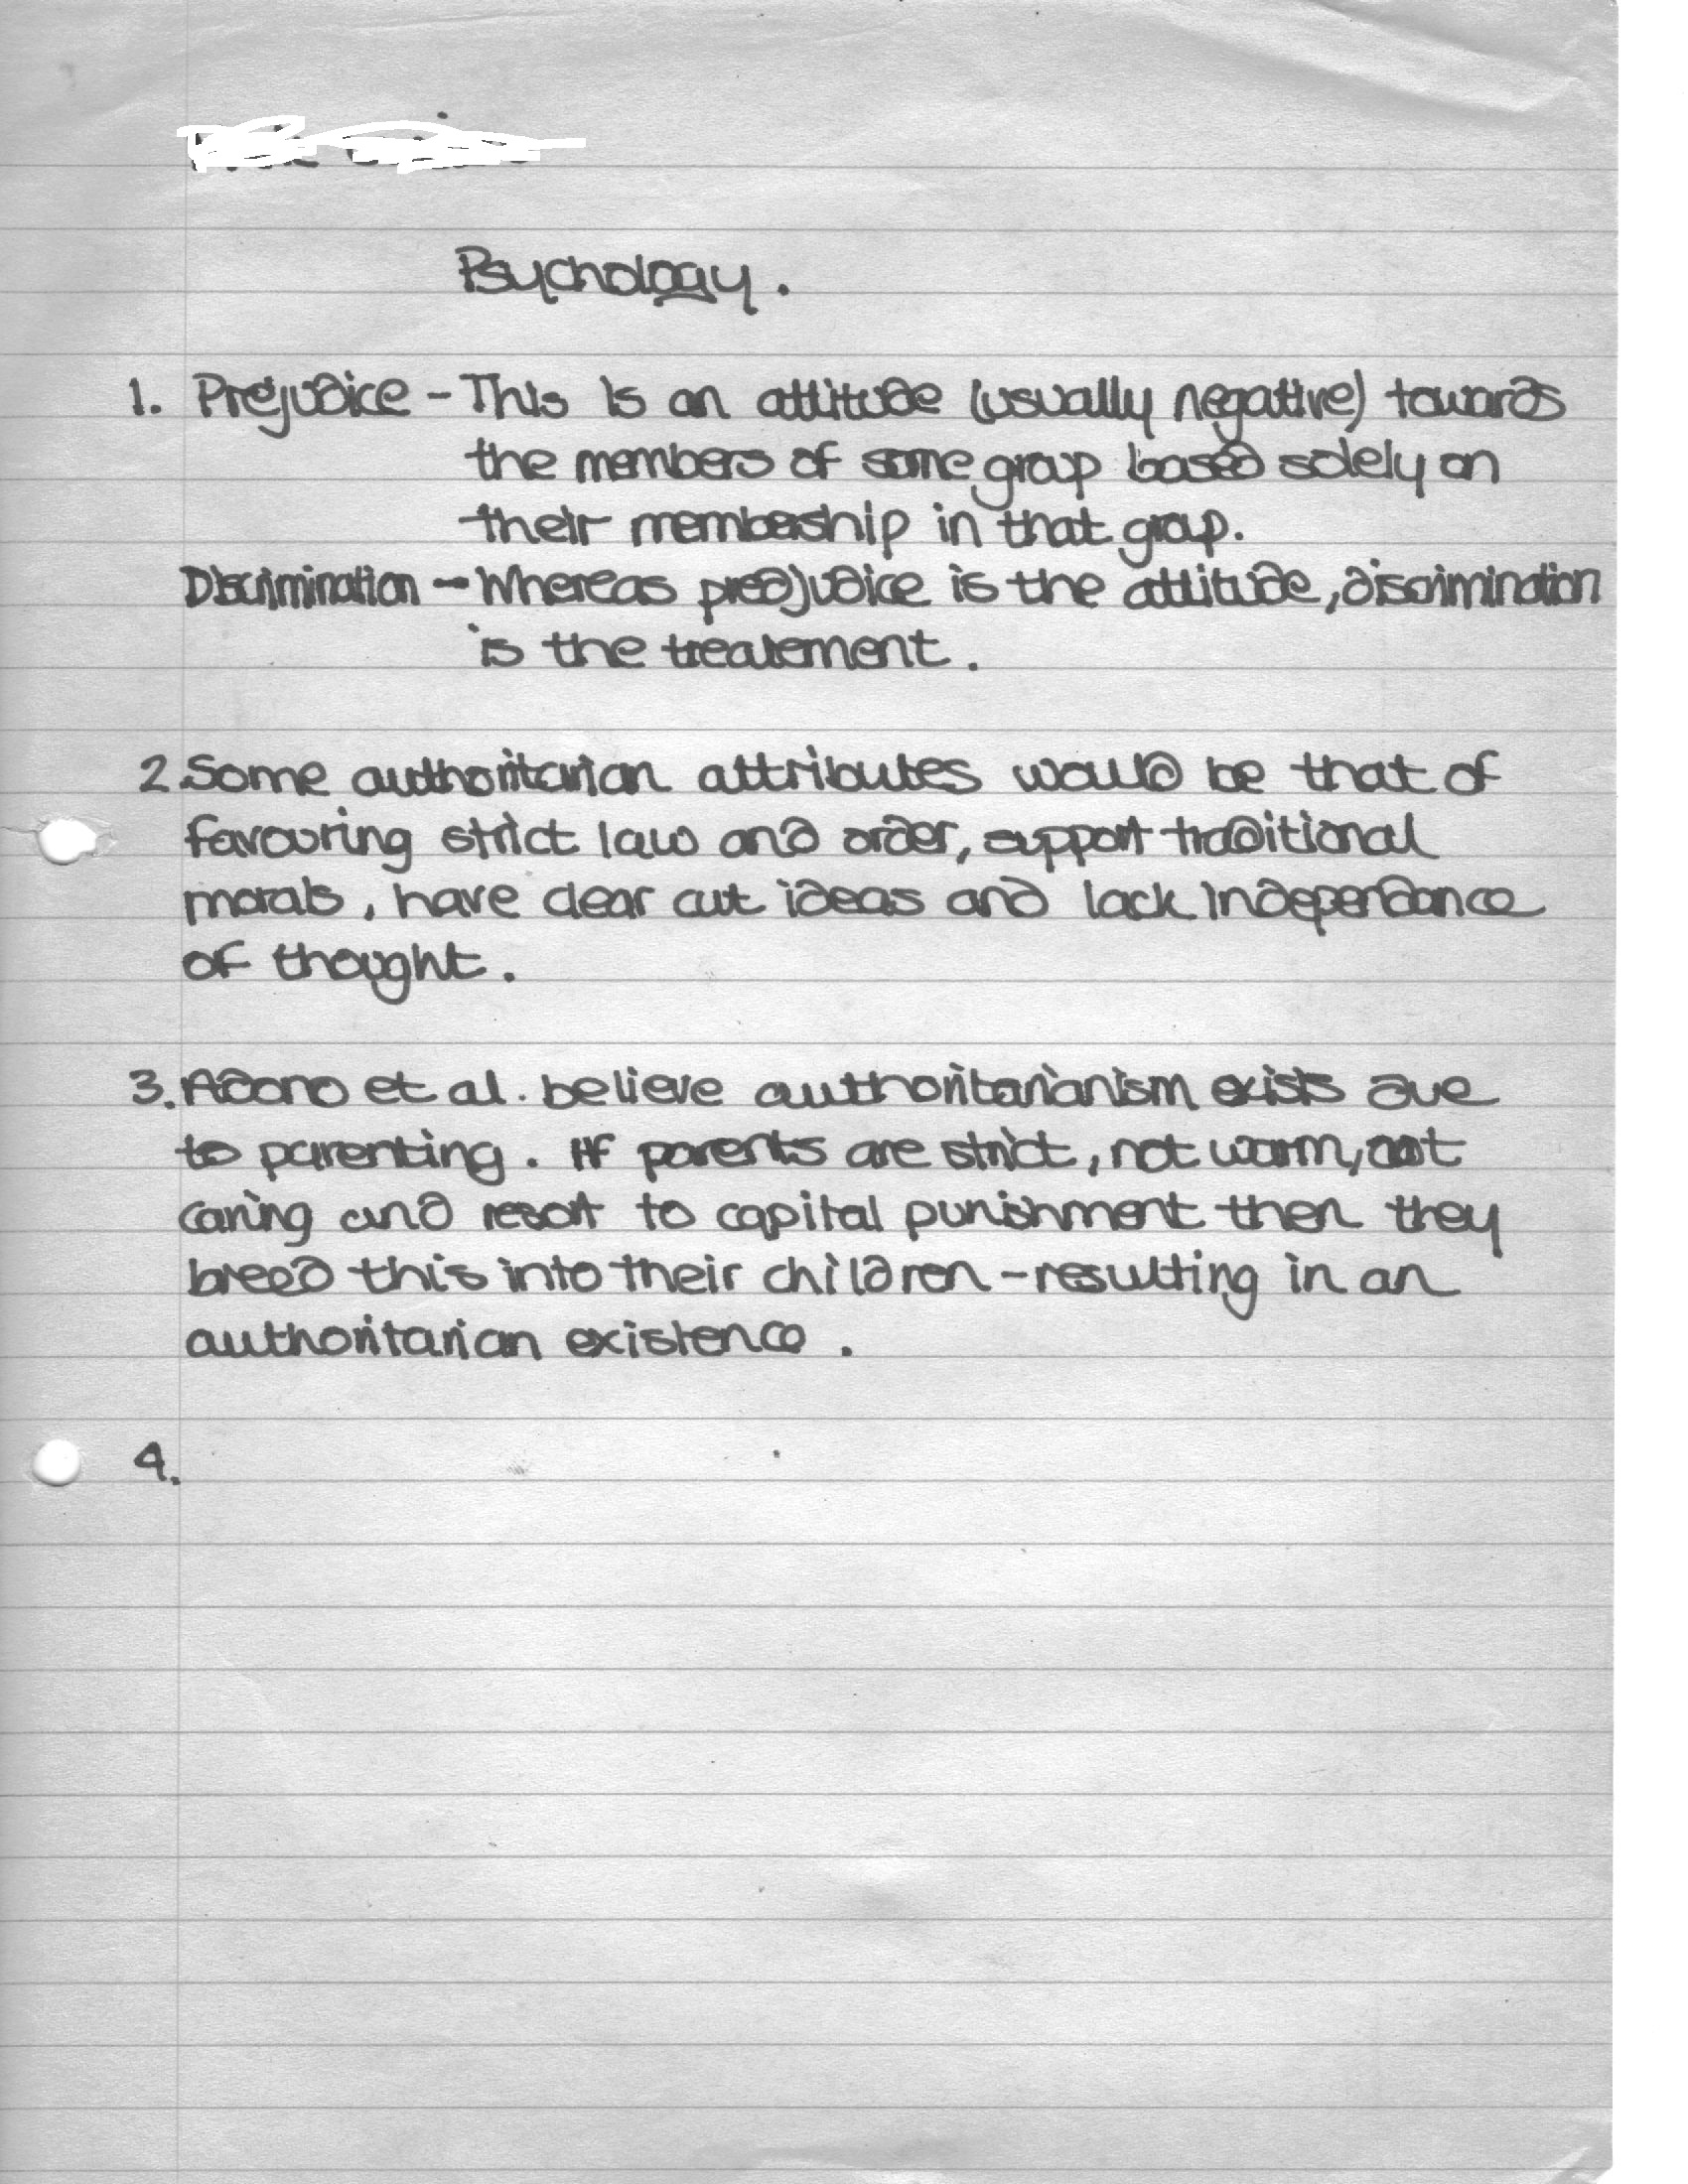 Psychology.
1. Prejudice - This is an attitude (usually negative) towards
the members of some group based solely on
their membership in that group.
Discrimination - Whereas predjudice is the attitude, discrimination
is the treatement.
2. Some authoritarian attributes would be that of
favouring strict law and order, support traditional
morals, have clear cut ideas and lack independance
of thought.
3. Adorno et al. believe authoritarianism exists due
to parenting. If parents are strict, not warm, not
caring and resort to capital punishment then they
breed this into their children - resulting in an
authoritarian existence.
4.